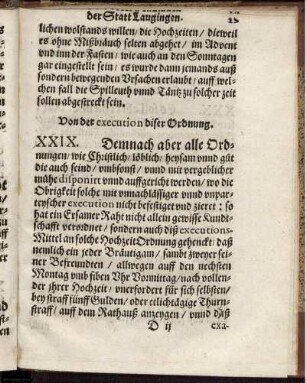 der Statt Laugingen.
lichen wolstands willen / die Hochzeiten / dieweil
es ohne Mißbräuch selten abgehet / im Advent
vnd inn der Fasten / wie auch an den Sonntagen
gar eingestellt sein / es wurde dann jemands auß
sondern bewegenden Vrsachen erlaubt / auff wel-
chen fall die Spilleuth vnnd Täntz zu solcher zeit
sollen abgestreckt sein.
Von der execution diser Ordnung.
XXIX. Demnach aber alle Ord-
nungen / wie Christlich / löblich / heysam vnnd gůt
die auch seind / vmbsonst / vnnd mit vergeblicher
mühe disponirt vnnd auffgericht werden / wo die
Obrigkeit solche mit vnnachlässiger vnnd vnpar-
teyscher execution nicht befestiget vnd zieret : so
hat ein Ersamer Raht nicht allein gewisse Kundt-
schafft verordnet / sondern auch diß executions-
Mittel an solche Hochzeit Ordnung gehenckt: daß
nemlich ein jeder Bräutigam / sambt zweyer sei-
ner Befreundten / allwegen auff den nechsten
Montag vmb siben Vhr Vormittag / nach vollen-
der jhrer Hochzeit / vnerfordert für sich selbsten /
bey straff fünff Gulden / oder etlichtägige Thurn-
straff / auff dem Rathauß anzeygen / vnnd daß
D ij exa-